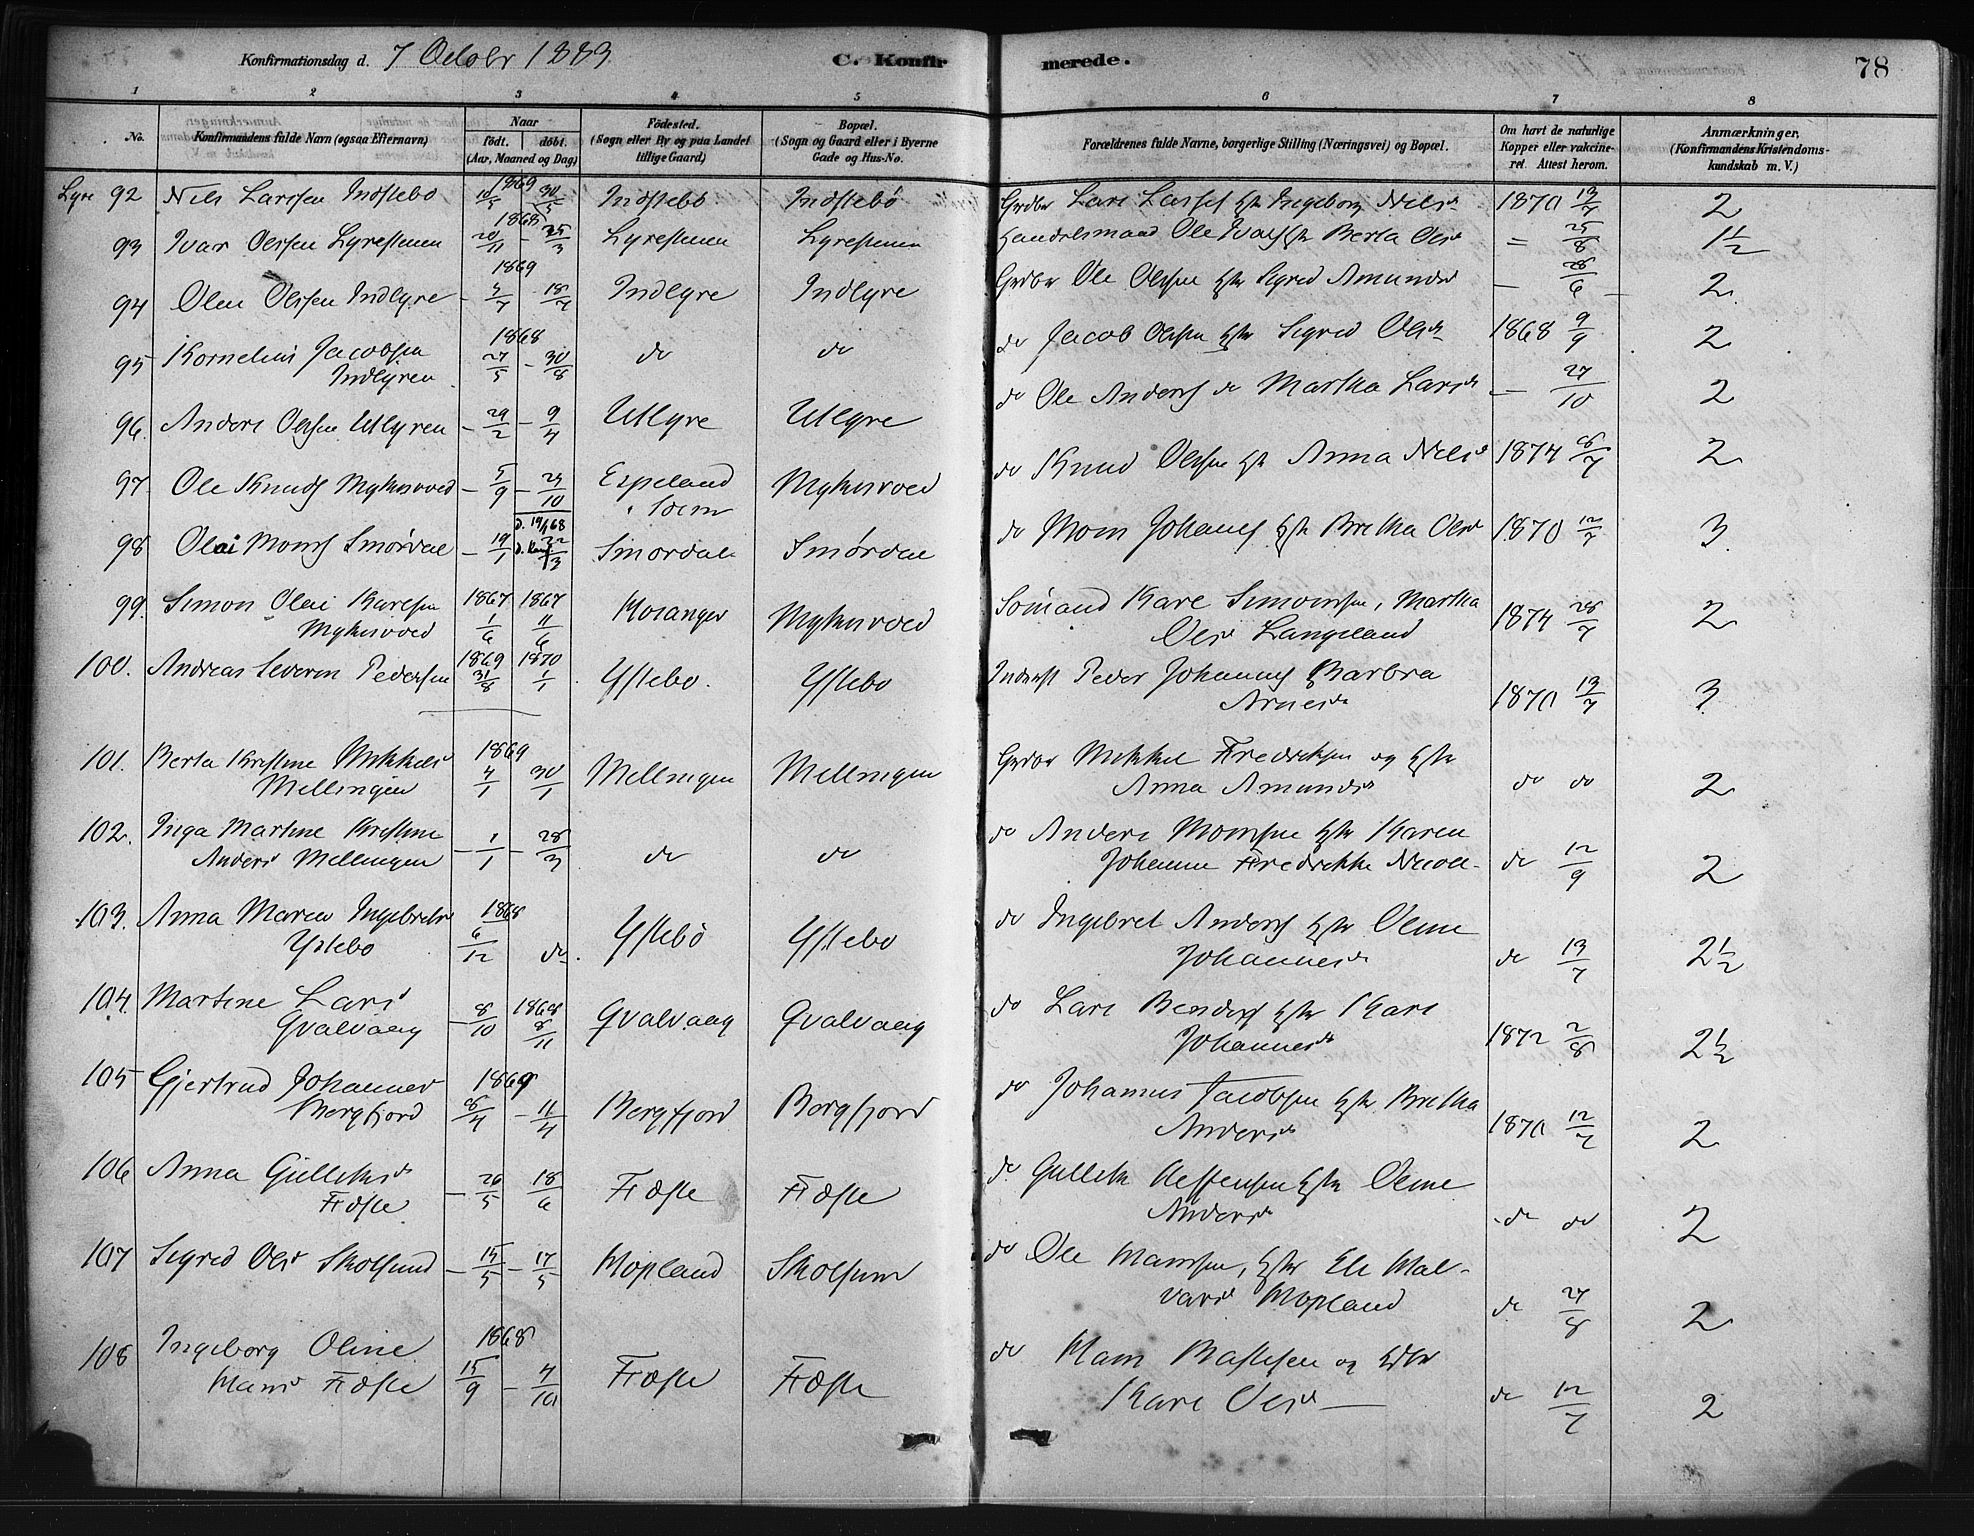 Konfirmationsdag d. 7 Octobr 1883.
C. Konfirmerede.
78
1 2 3 4 5 6 7 8
No.
Konfirmandens fulde Navn (ogsaa Efternavn)
Naar
født. døbt.
(Aar, Maaned og Dag)
Fødested.
(Sogn eller By og paa Landet
tillige Gaard)
Bopæl.
(Sogn og Gaard eller i Byerne
Gade og Hus-No.
Forældrenes fulde Navne, borgerlige Stilling (Næringsvei) og Bopæl.
Om havt de naturlige
Kopper eller vakcine-
ret. Attest herom.
Anmærkninger,
(Konfirmandens Kristendoms-
kundskab m. V.)
Lyre 92 Nils Larssen Indstebø 1869 30/5 Indstebø Indstebø Grdbr Lars Larss Hstr Ingeborg Nilsd 1870 13/7 2
93 Ivar Olssen Lyrestenen 1868 20/11 - 25/3 Lyrestenen Lyrestenen Handelsmand Ole Ivars Hstr Berta Olsd = 25/8 1½
94 Olen Olssen Indlyre 1869 4/7 18/7 Indlyre Indlyre Grdbr Ole Olssen Hstr Sigrid Amundsd - 28/6 2
95 Kornelius Jacobsen Indlyren 1868 27/5 - 30/8 do do do Jacob Olssen Hstr Sigrid Olsd 1868 9/9 2
96. Anders Olssen Utlyren - 29/2 - 9/4 Utlyre Utlyre do Ole Anders do Martha Larsd - 27/10 2
97 Ole Knuds Myksvoed - 5/9 - 29/10 Espeland Myksvoed do Knud Olssen Hstr Anna Nilsd 1874 8/7 2
98 Olai Mons Smørdal - 19/1 22/3 Smørdal Smørdal do Mons Johans Hstr Bretha Olsd 1870 12/7 3
99. Simon Olai Karlsen Myksvoed 1867 1/6 1867 11/6 Hosanger Myksvoed Sømand Karl Simonsen, Martha Olsd Langeland 1874 28/7 2
100. Andreas Severin Pedersen 1869 31/8 1870 1/1 Ystebø. Ystebø Inderst Peder Johannes Barbra Arnesd 1870 13/7 3
101. Berta Kristine Mikkelsd Mellingen 1869 4/1 30/1 Mellingen Mellingen Grdbr Mikkel Fredriksen og Hstr Anna Amundsd do do 2
102. Inga Martine Kristine Andersd Mellingen - 1/1 - 28/3 do do do Anders Monssen Hstr Karen Johanne Fredrikke do 12/9 2
103. Anna Maren Ingebretsd Ystebø 1868 6/12 do. Ystebø Ystebø do Ingebret Anders Hstr Oline Johannesd do 13/7 2½
104. Martine Larsd Qvalvaag - 8/10 1868 8/11 Qvalvaag Qvalvaag do Lars Hstr Kari Johannesd 1872 2/8 2½
105 Gjertrud Johannesd Bergfjord 1869 8/4 - 11/4 Bergfjord Bergfjord do Johannes Jacobsen Hstr Bretha Andersd 1870 12/7 2
106 Anna Gulliksd Fræste - 26/5 18/6 Fræste Fræste do Gullik Hstr Oline Andersd do do 2
107 Sigrid Olsd Skolsund - 15/5 - 17/5 Hopland Skolsund do Ole Hanssen, Hstr Eli Halvarsd Hopland do 27/8 2
108 Ingeborg Oline Hansd Fræste 1868 15/9 - 4/10 Fræste Fræste do Hans og Hstr Kari Olsd do 12/7 2